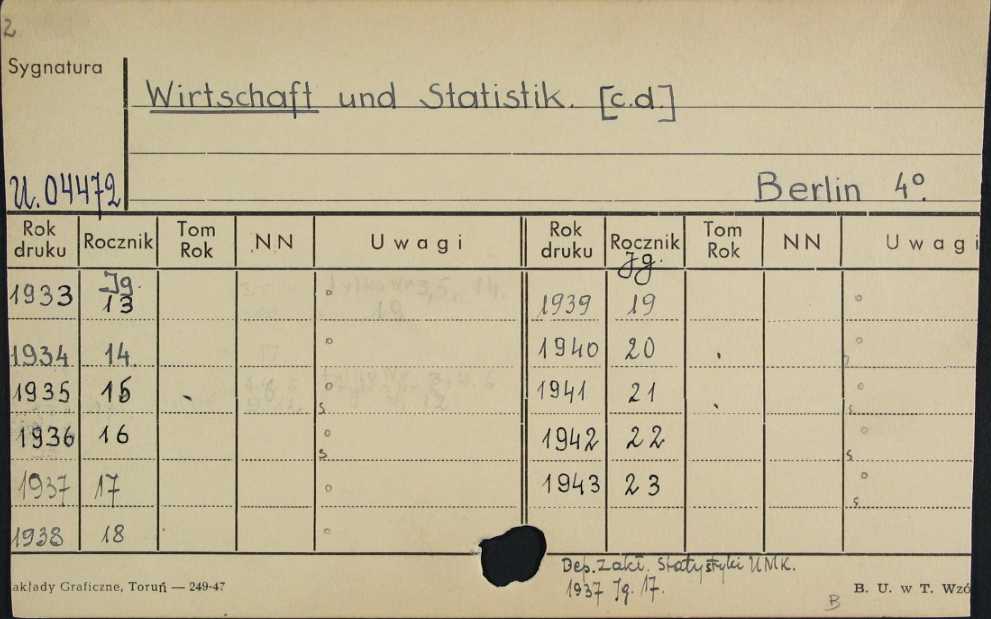 2
Sygnatura
Wirtschaft und Statistik. [c.d.]
U.04472
Berlin 4°.
Rok druku Rocznik Tom Rok NN Uwagi Rok druku Rocznik Tom Rok NN Uwagi
Jg. Jg.
1933 13 ° 1939 19 °
1934 14 ° 1940 20 °
1935 15 ° s 1941 21 ° s
1936 16 ° s 1942 22 ° s
1937 17 ° 1943 23 ° s
1938 18 °
Dep. Zakł. Statystyki UMK.
1937 Jg. 17.
akłady Graficzne, Toruń — 249-47
B
B. U. w T. Wzó